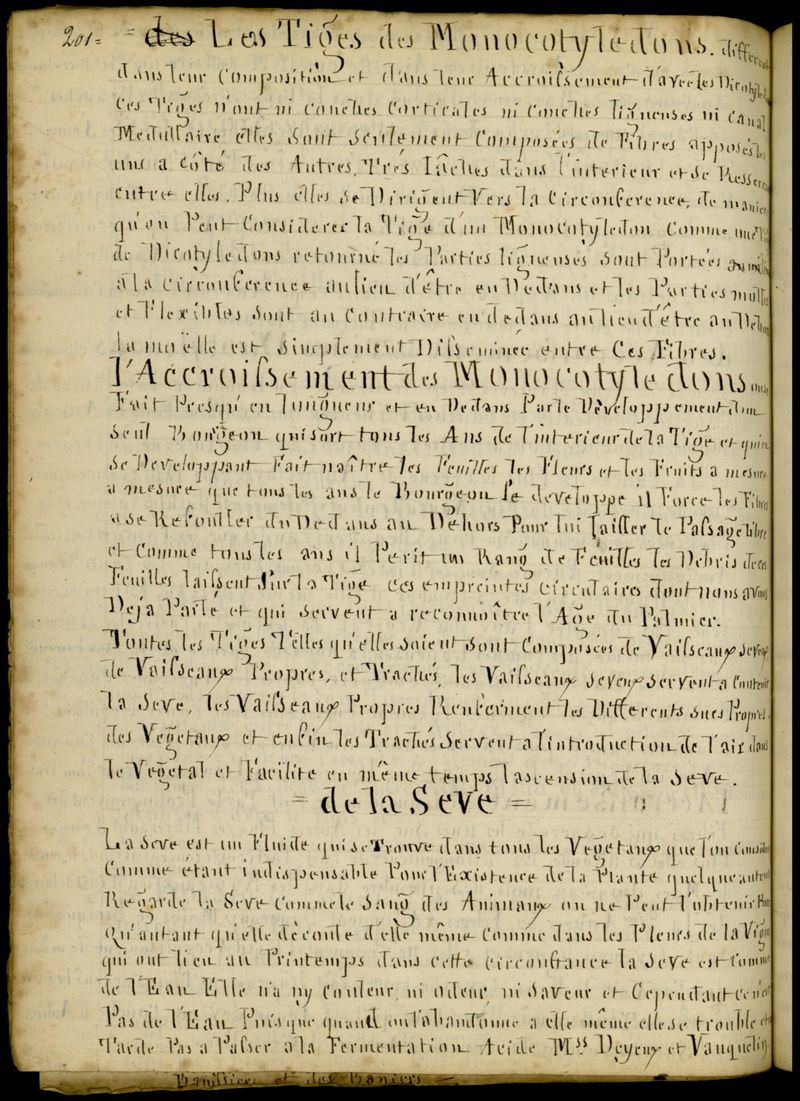 201 = = des Les Tiges des Monocotyledons. different
dans leur Composition et dans leur Accroissement d'avec les Dicotyled
Ces Tiges n'ont ni couches Corticales ni Couches ligneuses ni canal
Medullaire elles sont seulement Composées de Fibres apposés les
uns a côté des Autres, Très lâches dans l'interieur et se Resserre
entre elles, Plus elles se Dirigent Vers la Circonference, de maniere
qu'on Peut Considerer la Tige d'un Monocotyledon Comme une
de Dicotyledons retourné les Parties ligneuses sont Portées
a la Circonference au lieu d'être en Dedans et les Parties molles
et Flexibles sont au Contraire en dedans au lieu d'être au Dehors
la moëlle est simplement Disseminée entre Ces Fibres.
l'Accroissement des Monocotyledons
Fait Presqu'en longueur et en Dedans Par le Développement d'un
seul Bourgeon qui sort tous les Ans de l'interieur de la Tige et qui en
se Developpant Fait naître les Feuilles les Fleurs et les Fruits a mesure
a mesure que tous les ans le Bourgeon se developpe il Force les Fibres
a se Refouller du Dedans au Dehors Pour lui laisser le Passage libre
et comme tous les ans il Perit un Rang de Feuilles les Debris de ces
Feuilles laissent sur la Tige ces empreintes Circulaires dont nous avons
Déja Parlé et qui servent a reconnoître l'Age du Palmier.
Toutes les Tiges Telles qu'elles soient sont Composées de Vaisseaux seveux
de Vaisseaux Propres, et Trachés, les Vaisseaux seveux servent a Contenir
la Seve, les Vaisseaux Propres Renferment les Differents sucs Propres
des Vegetaux et enfin les Trachés servent a l'introduction de l'air dans
le Vegetal et Facilite en même temps l'ascension de la Seve.
= de la Seve =
La seve est un Fluide qui se Trouve dans tous les Vegetaux que l'on Consider
Comme étant indispensable Pour l'Existence de la Plante quelque auteurs
Regarde la Seve Comme le sang des Animaux on ne Peut l'obtenir Pure
Qu'autant qu'elle découle d'elle même Comme dans les Pleurs de la Vigne
qui ont lieu au Printemps dans cette circonstance la Seve est Comme
de l'Eau Elle n'a ny Couleur, ni odeur, ni Saveur et Cependant ce n'est
Pas de l'Eau Puisque quand on l'abandonne a elle même elle se trouble et
Tarde Pas a Passer a la Fermentation Acide Mss Deyeux et Vauquelin